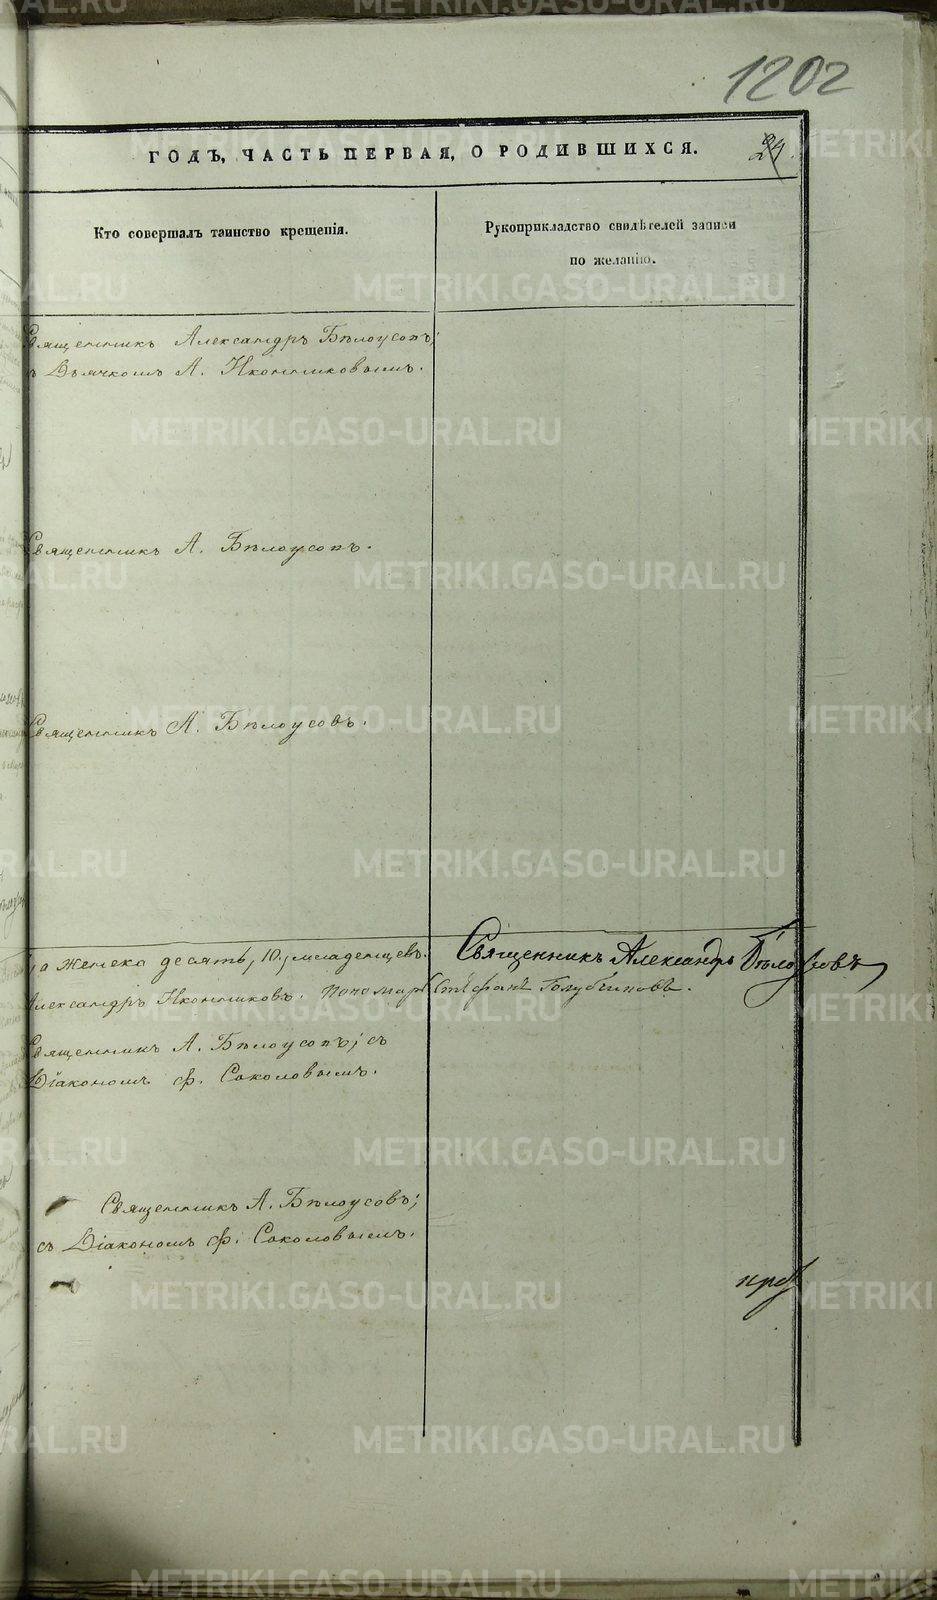 1202
ГОДЪ, ЧАСТЬ ПЕРВАЯ, О РОДИВШИХСЯ.
24.
Кто совершалъ таинство крещенія.
Рукоприкладство свидѣтелей записи
по желанію.
Священникъ Александръ Бѣлоусовъ;
съ Дьячкомъ А. Иконниковымъ.
Священникъ А. Бѣлоусовъ.
Священникъ А. Бѣлоусовъ.
а женска десять, 10, младенцевъ.
Священникъ Александръ Бѣлоусовъ
Александръ Иконниковъ. пономарь Стефанъ Голубчиковъ.
Священникъ А. Бѣлоусовъ; съ
Діакономъ Ф. Соколовымъ.
Священникъ А. Бѣлоусовъ;
съ Діакономъ Ф. Соколовымъ.
METRIKI.GASO-URAL.RU